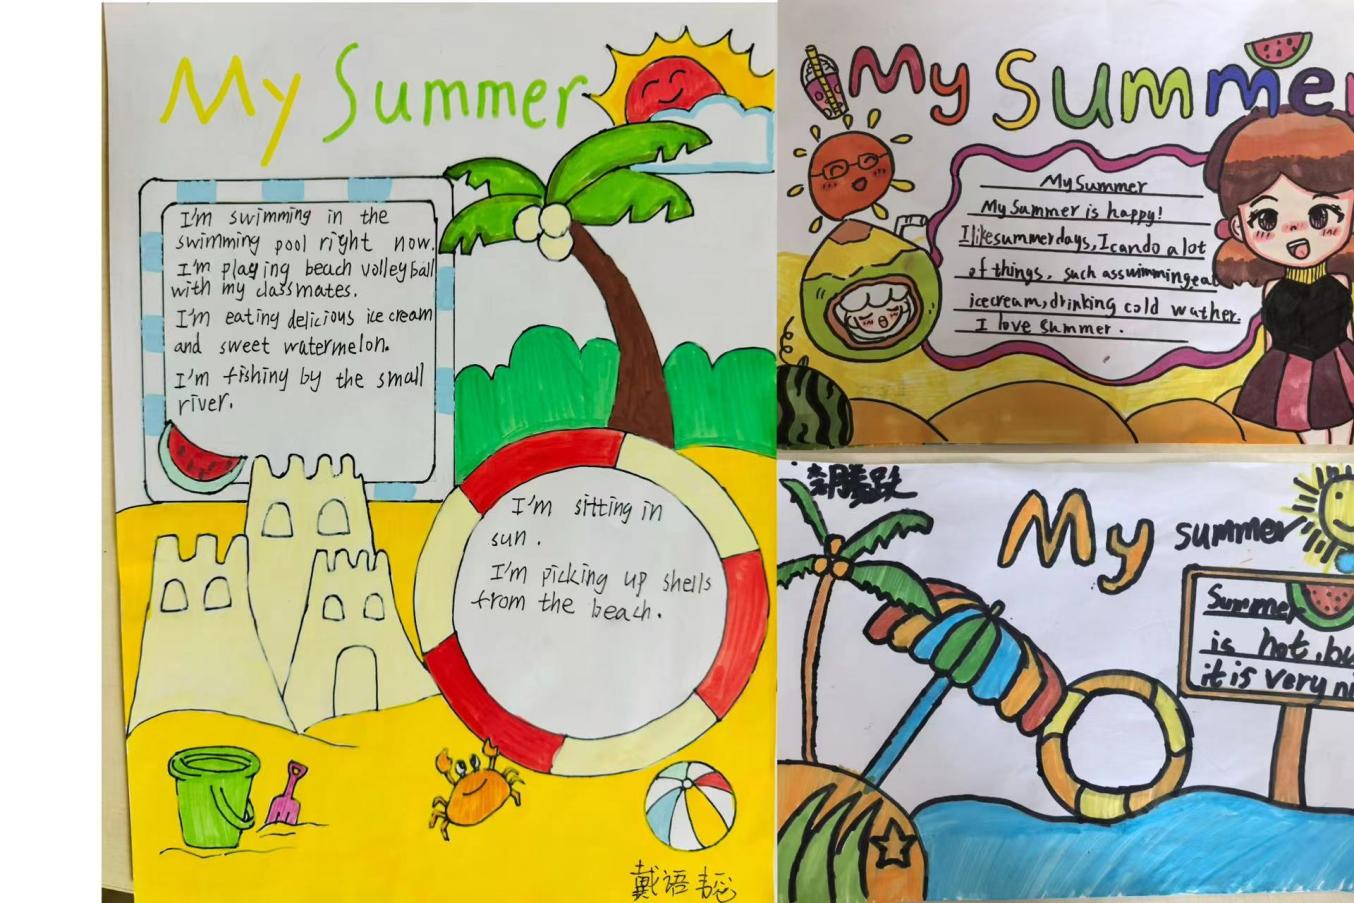 My Summer
I'm swimming in the
swimming pool right now.
I'm playing beach volleyball
with my classmates.
I'm eating delicious ice cream
and sweet watermelon.
I'm fishing by the small
river.
I'm sitting in
sun.
I'm picking up shells
from the beach.
戴语
My Summer
My Summer
My Summer is happy!
I like summer days, I can do a lot
of things, such as swimming, eat
ice cream, drinking cold wather.
I love summer.
My summer
Summer
is hot, bu
it is very ni